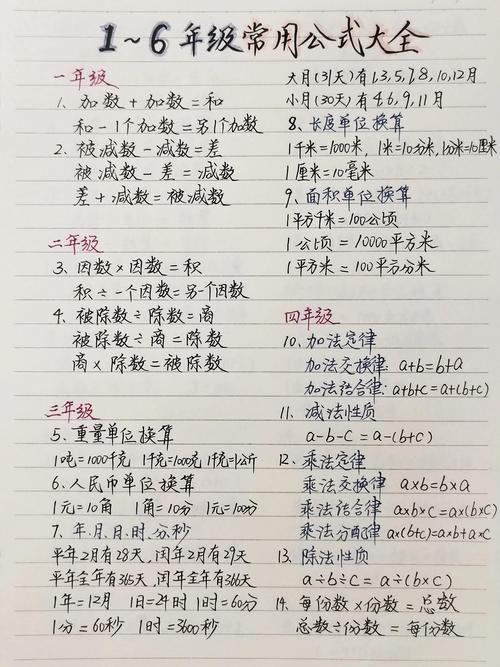 1~6年级常用公式大全
一年级
1、加数+加数=和
和-1个加数=另1个加数
2、被减数-减数=差
被减数-差=减数
差+减数=被减数
二年级
3、因数×因数=积
积÷一个因数=另一个因数
4、被除数÷除数=商
被除数÷商=除数
商×除数=被除数
三年级
5、重量单位换算
1吨=1000千克 1千克=1000克 1千克=1公斤
6、人民币单位换算
1元=10角 1角=10分 1元=100分
7、年、月、日、时、分、秒
平年2月有28天,闰年2月有29天
平年全年有365天,闰年全年有366天
1年=12月 1日=24时 1时=60分
1分=60秒 1时=3600秒
大月(31天)有1,3,5,7,8,10,12月
小月(30天)有4,6,9,11月
8、长度单位换算
1千米=1000米,1米=10分米,1分米=10厘米
1厘米=10毫米
9、面积单位换算
1平方千米=100公顷
1公顷=10000平方米
1平方米=100平方分米
四年级
10、加法定律
加法交换律:a+b=b+a
加法结合律:a+b+c=a+(b+c)
11、减法性质
a-b-c=a-(b+c)
12、乘法定律
乘法交换律 a×b=b×a
乘法结合律 a×b×c=a×(b×c)
乘法分配律 a×(b+c)=a×b+a×c
13、除法性质
a÷b÷c=a÷(b×c)
14、每份数×份数=总数
总数÷份数=每份数